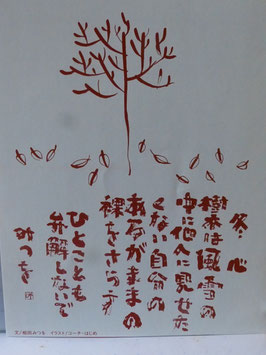 冬心
樹木は風雪の
中に他人に見せた
くない自分の
あるがままの
裸をさらす
ひとことも
弁解しないで
みつを
文/相田みつを イラスト/コーダ・はじめ